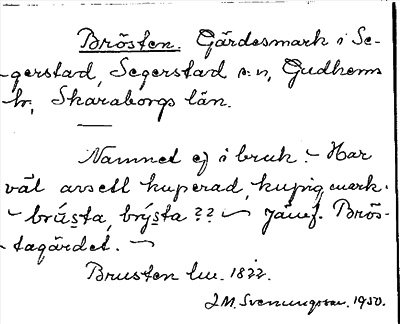 Brösten. Gärdesmark i Se-
gerstad, Segerstad s:n, Gudhems
hr, Skaraborgs län.
Namnet ej i bruk. – Har
väl avsett kuperad, kupig mark.
– brústa, brýsta ?? – Jämf. Brös-
tagärdet. –
Brusten lm. 1822.
J.M. Svenungsson. 1950.